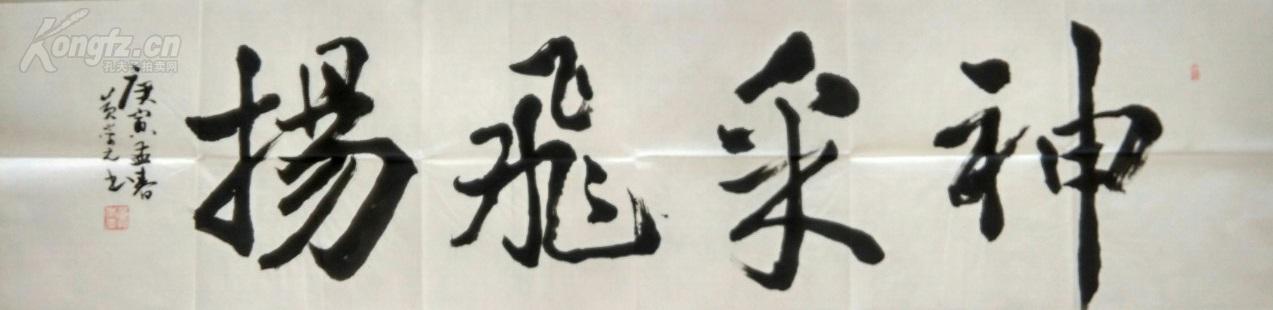 神采飛揚
庚寅孟春
黄学文书
Kongfz.cn
孔夫子拍卖网